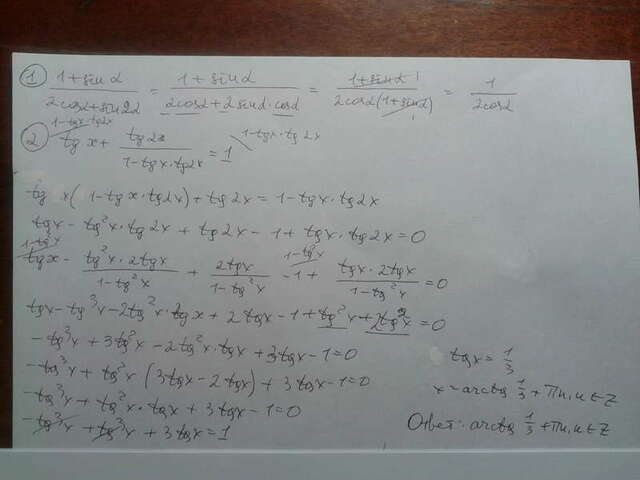 ① (1+sin α)/(2cos α+sin 2α) = (1+sin α)/(2cos α+2sin α·cos α) = (1+sin α)/(2cos α(1+sin α)) = 1/(2cos α)
② 1-tg x·tg 2x / tg x + tg 2x/(1-tg x·tg 2x) = 1 \ 1-tg x·tg 2x
tg x(1-tg x·tg 2x)+tg 2x = 1-tg x·tg 2x
tg x - tg² x·tg 2x + tg 2x - 1 + tg x·tg 2x = 0
1-tg² x / tg x - (tg² x·2tg x)/(1-tg² x) + 2tg x/(1-tg² x) - 1-tg² x / 1 + (tg x·2tg x)/(1-tg² x) = 0
tg x - tg³ x - 2tg² x·tg x + 2tg x - 1 + tg² x + 2tg² x = 0
-tg³ x + 3tg² x - 2tg² x·tg x + 3tg x - 1 = 0
-tg³ x + tg² x (3tg x - 2tg x) + 3tg x - 1 = 0
-tg³ x + tg² x·tg x + 3tg x - 1 = 0
-tg³ x + tg³ x + 3tg x = 1
tg x = 1/3
x = arctg 1/3 + πn, n ∈ Z
Ответ: arctg 1/3 + πn, n ∈ Z